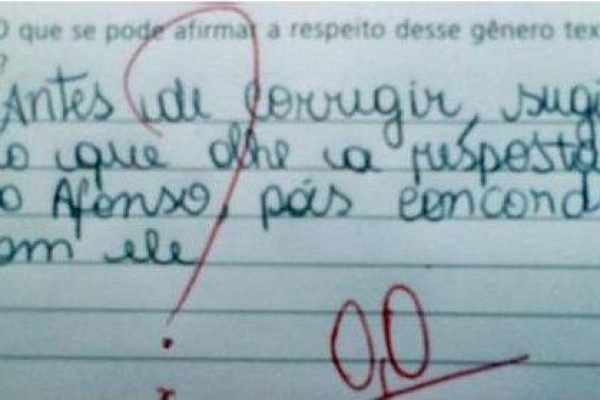 O que se pode afirmar a respeito desse gênero tex
?
Antes de corrigir, sugi
o que olhe a resposta
o Afonso, pois concord
om ele
?
0,0